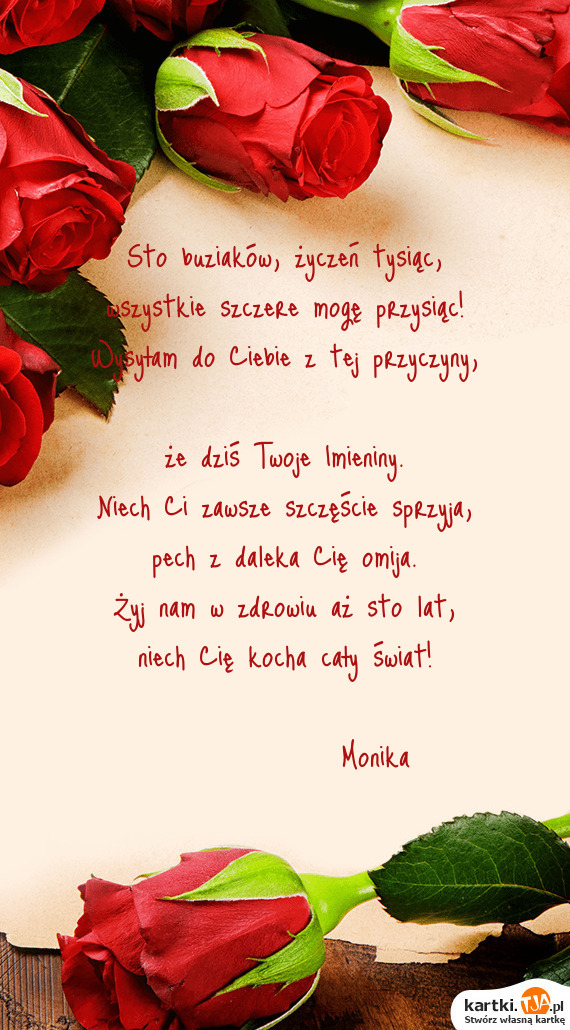 Sto buziaków, życzeń tysiąc,
wszystkie szczere mogę przysiąc!
Wysyłam do Ciebie z tej przyczyny,
że dziś Twoje Imieniny.
Niech Ci zawsze szczęście sprzyja,
pech z daleka Cię omija.
Żyj nam w zdrowiu aż sto lat,
niech Cię kocha cały świat!
Monika
kartki.TJA.pl
Stwórz własną kartkę